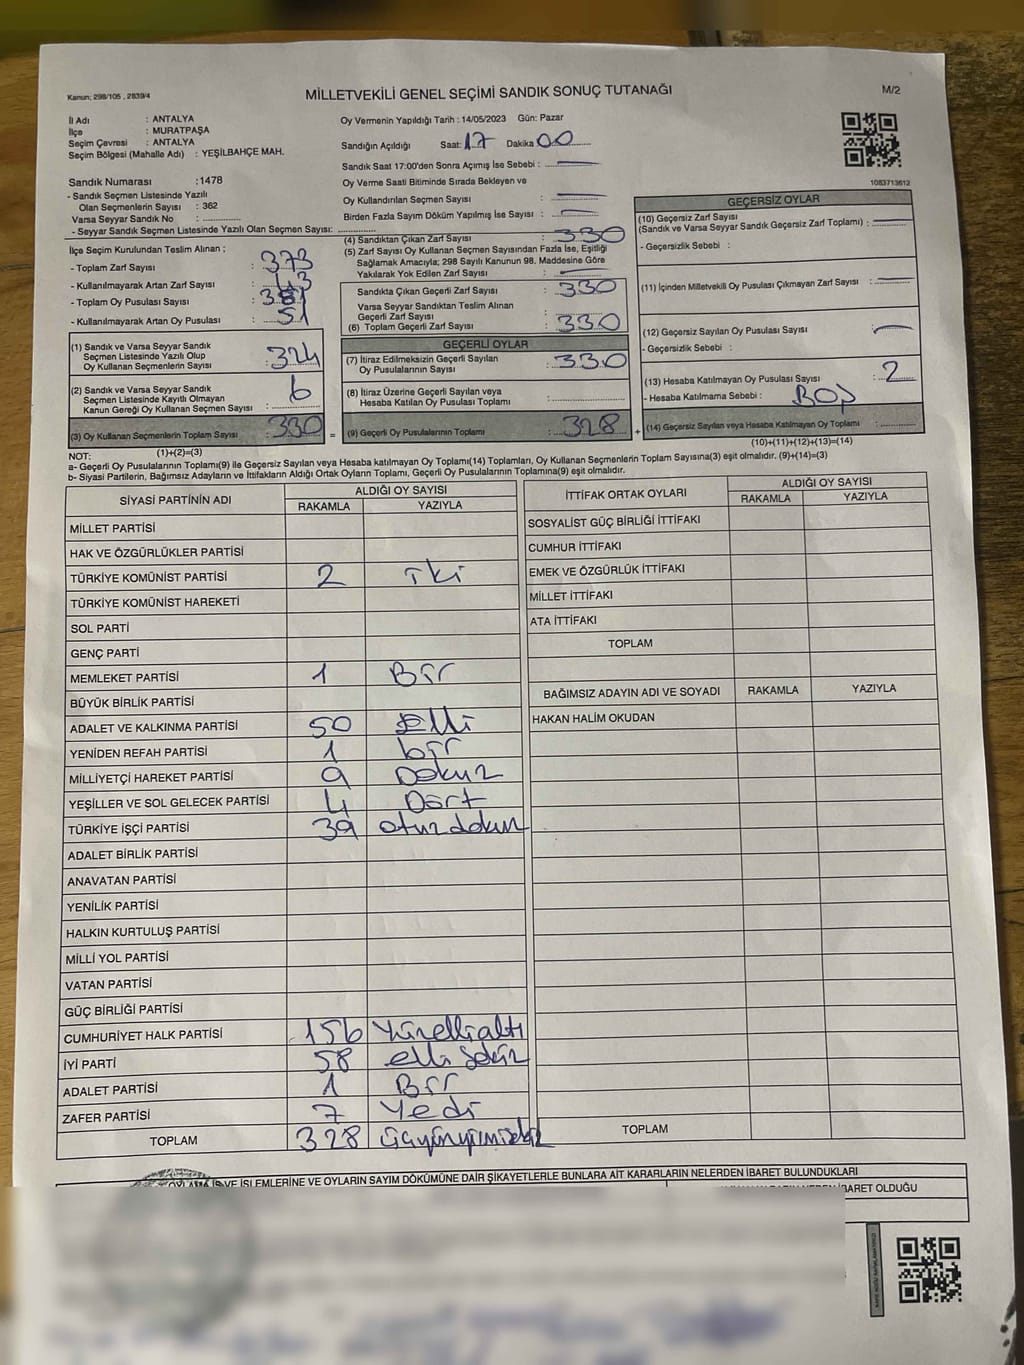 Kanun; 298/105 , 2839/4
MİLLETVEKİLİ GENEL SEÇİMİ SANDIK SONUÇ TUTANAĞI
M/2
İl Adı : ANTALYA
İlçe : MURATPAŞA
Seçim Çevresi : ANTALYA
Seçim Bölgesi (Mahalle Adı) : YEŞİLBAHÇE MAH.
Sandık Numarası :1478
- Sandık Seçmen Listesinde Yazılı
Olan Seçmenlerin Sayısı : 362
Varsa Seyyar Sandık No :
- Seyyar Sandık Seçmen Listesinde Yazılı Olan Seçmen Sayısı:
İlçe Seçim Kurulundan Teslim Alınan ;
- Toplam Zarf Sayısı : 373
- Kullanılmayarak Artan Zarf Sayısı : 43
- Toplam Oy Pusulası Sayısı : 381
- Kullanılmayarak Artan Oy Pusulası : 51
(1) Sandık ve Varsa Seyyar Sandık
Seçmen Listesinde Yazılı Olup
Oy Kullanan Seçmenlerin Sayısı : 324
(2) Sandık ve Varsa Seyyar Sandık
Seçmen Listesinde Kayıtlı Olmayan
Kanun Gereği Oy Kullanan Seçmen Sayısı : 6
(3) Oy Kullanan Seçmenlerin Toplam Sayısı : 330
(1)+(2)=(3)
Oy Vermenin Yapıldığı Tarih : 14/05/2023 Gün: Pazar
Sandığın Açıldığı Saat: 17 Dakika 00
Sandık Saat 17:00'den Sonra Açımış İse Sebebi :
Oy Verme Saati Bitiminde Sırada Bekleyen ve
Oy Kullandırılan Seçmen Sayısı :
Birden Fazla Sayım Döküm Yapılmış İse Sayısı :
(4) Sandıktan Çıkan Zarf Sayısı : 330
(5) Zarf Sayısı Oy Kullanan Seçmen Sayısından Fazla İse, Eşitliği
Sağlamak Amacıyla; 298 Sayılı Kanunun 98. Maddesine Göre
Yakılarak Yok Edilen Zarf Sayısı :
Sandıkta Çıkan Geçerli Zarf Sayısı : 330
Varsa Seyyar Sandıktan Teslim Alınan
Geçerli Zarf Sayısı :
(6) Toplam Geçerli Zarf Sayısı : 330
GEÇERLİ OYLAR
(7) İtiraz Edilmeksizin Geçerli Sayılan
Oy Pusulalarının Sayısı : 330
(8) İtiraz Üzerine Geçerli Sayılan veya
Hesaba Katılan Oy Pusulası Toplamı :
= (9) Geçerli Oy Pusulalarının Toplamı : 328 +
1083713612
GEÇERSİZ OYLAR
(10) Geçersiz Zarf Sayısı
(Sandık ve Varsa Seyyar Sandık Geçersiz Zarf Toplamı) :
- Geçersizlik Sebebi :
(11) İçinden Milletvekili Oy Pusulası Çıkmayan Zarf Sayısı :
(12) Geçersiz Sayılan Oy Pusulası Sayısı :
- Geçersizlik Sebebi :
(13) Hesaba Katılmayan Oy Pusulası Sayısı : 2
- Hesaba Katılmama Sebebi :
(14) Geçersiz Sayılan veya Hesaba Katılmayan Oy Toplamı :
(10)+(11)+(12)+(13)=(14)
NOT:
a- Geçerli Oy Pusulalarının Toplamı(9) ile Geçersiz Sayılan veya Hesaba katılmayan Oy Toplamı(14) Toplamları, Oy Kullanan Seçmenlerin Toplam Sayısına(3) eşit olmalıdır. (9)+(14)=(3)
b- Siyasi Partilerin, Bağımsız Adayların ve İttifakların Aldığı Ortak Oyların Toplamı, Geçerli Oy Pusulalarının Toplamına(9) eşit olmalıdır.
SİYASİ PARTİNİN ADI ALDIĞI OY SAYISI
RAKAMLA YAZIYLA
MİLLET PARTİSİ
HAK VE ÖZGÜRLÜKLER PARTİSİ
TÜRKİYE KOMÜNİST PARTİSİ 2 iki
TÜRKİYE KOMÜNİST HAREKETİ
SOL PARTİ
GENÇ PARTİ
MEMLEKET PARTİSİ 1 Bir
BÜYÜK BİRLİK PARTİSİ
ADALET VE KALKINMA PARTİSİ 50 elli
YENİDEN REFAH PARTİSİ 1 bir
MİLLİYETÇİ HAREKET PARTİSİ 9 Dokuz
YEŞİLLER VE SOL GELECEK PARTİSİ 4 Dört
TÜRKİYE İŞÇİ PARTİSİ 39 otuz dokuz
ADALET BİRLİK PARTİSİ
ANAVATAN PARTİSİ
YENİLİK PARTİSİ
HALKIN KURTULUŞ PARTİSİ
MİLLİ YOL PARTİSİ
VATAN PARTİSİ
GÜÇ BİRLİĞİ PARTİSİ
CUMHURİYET HALK PARTİSİ 156 Yüzelli altı
İYİ PARTİ 58 elli Sekiz
ADALET PARTİSİ 1 Bir
ZAFER PARTİSİ 7 Yedi
TOPLAM 328 üçyüzyirmisekiz
İTTİFAK ORTAK OYLARI ALDIĞI OY SAYISI
RAKAMLA YAZIYLA
SOSYALİST GÜÇ BİRLİĞİ İTTİFAKI
CUMHUR İTTİFAKI
EMEK VE ÖZGÜRLÜK İTTİFAKI
MİLLET İTTİFAKI
ATA İTTİFAKI
TOPLAM
BAĞIMSIZ ADAYIN ADI VE SOYADI RAKAMLA YAZIYLA
HAKAN HALİM OKUDAN
TOPLAM
OYLAMA İŞ VE İŞLEMLERİNE VE OYLARIN SAYIM DÖKÜMÜNE DAİR ŞİKAYETLERLE BUNLARA AİT KARARLARIN NELERDEN İBARET BULUNDUKLARI
İBARET OLDUĞU